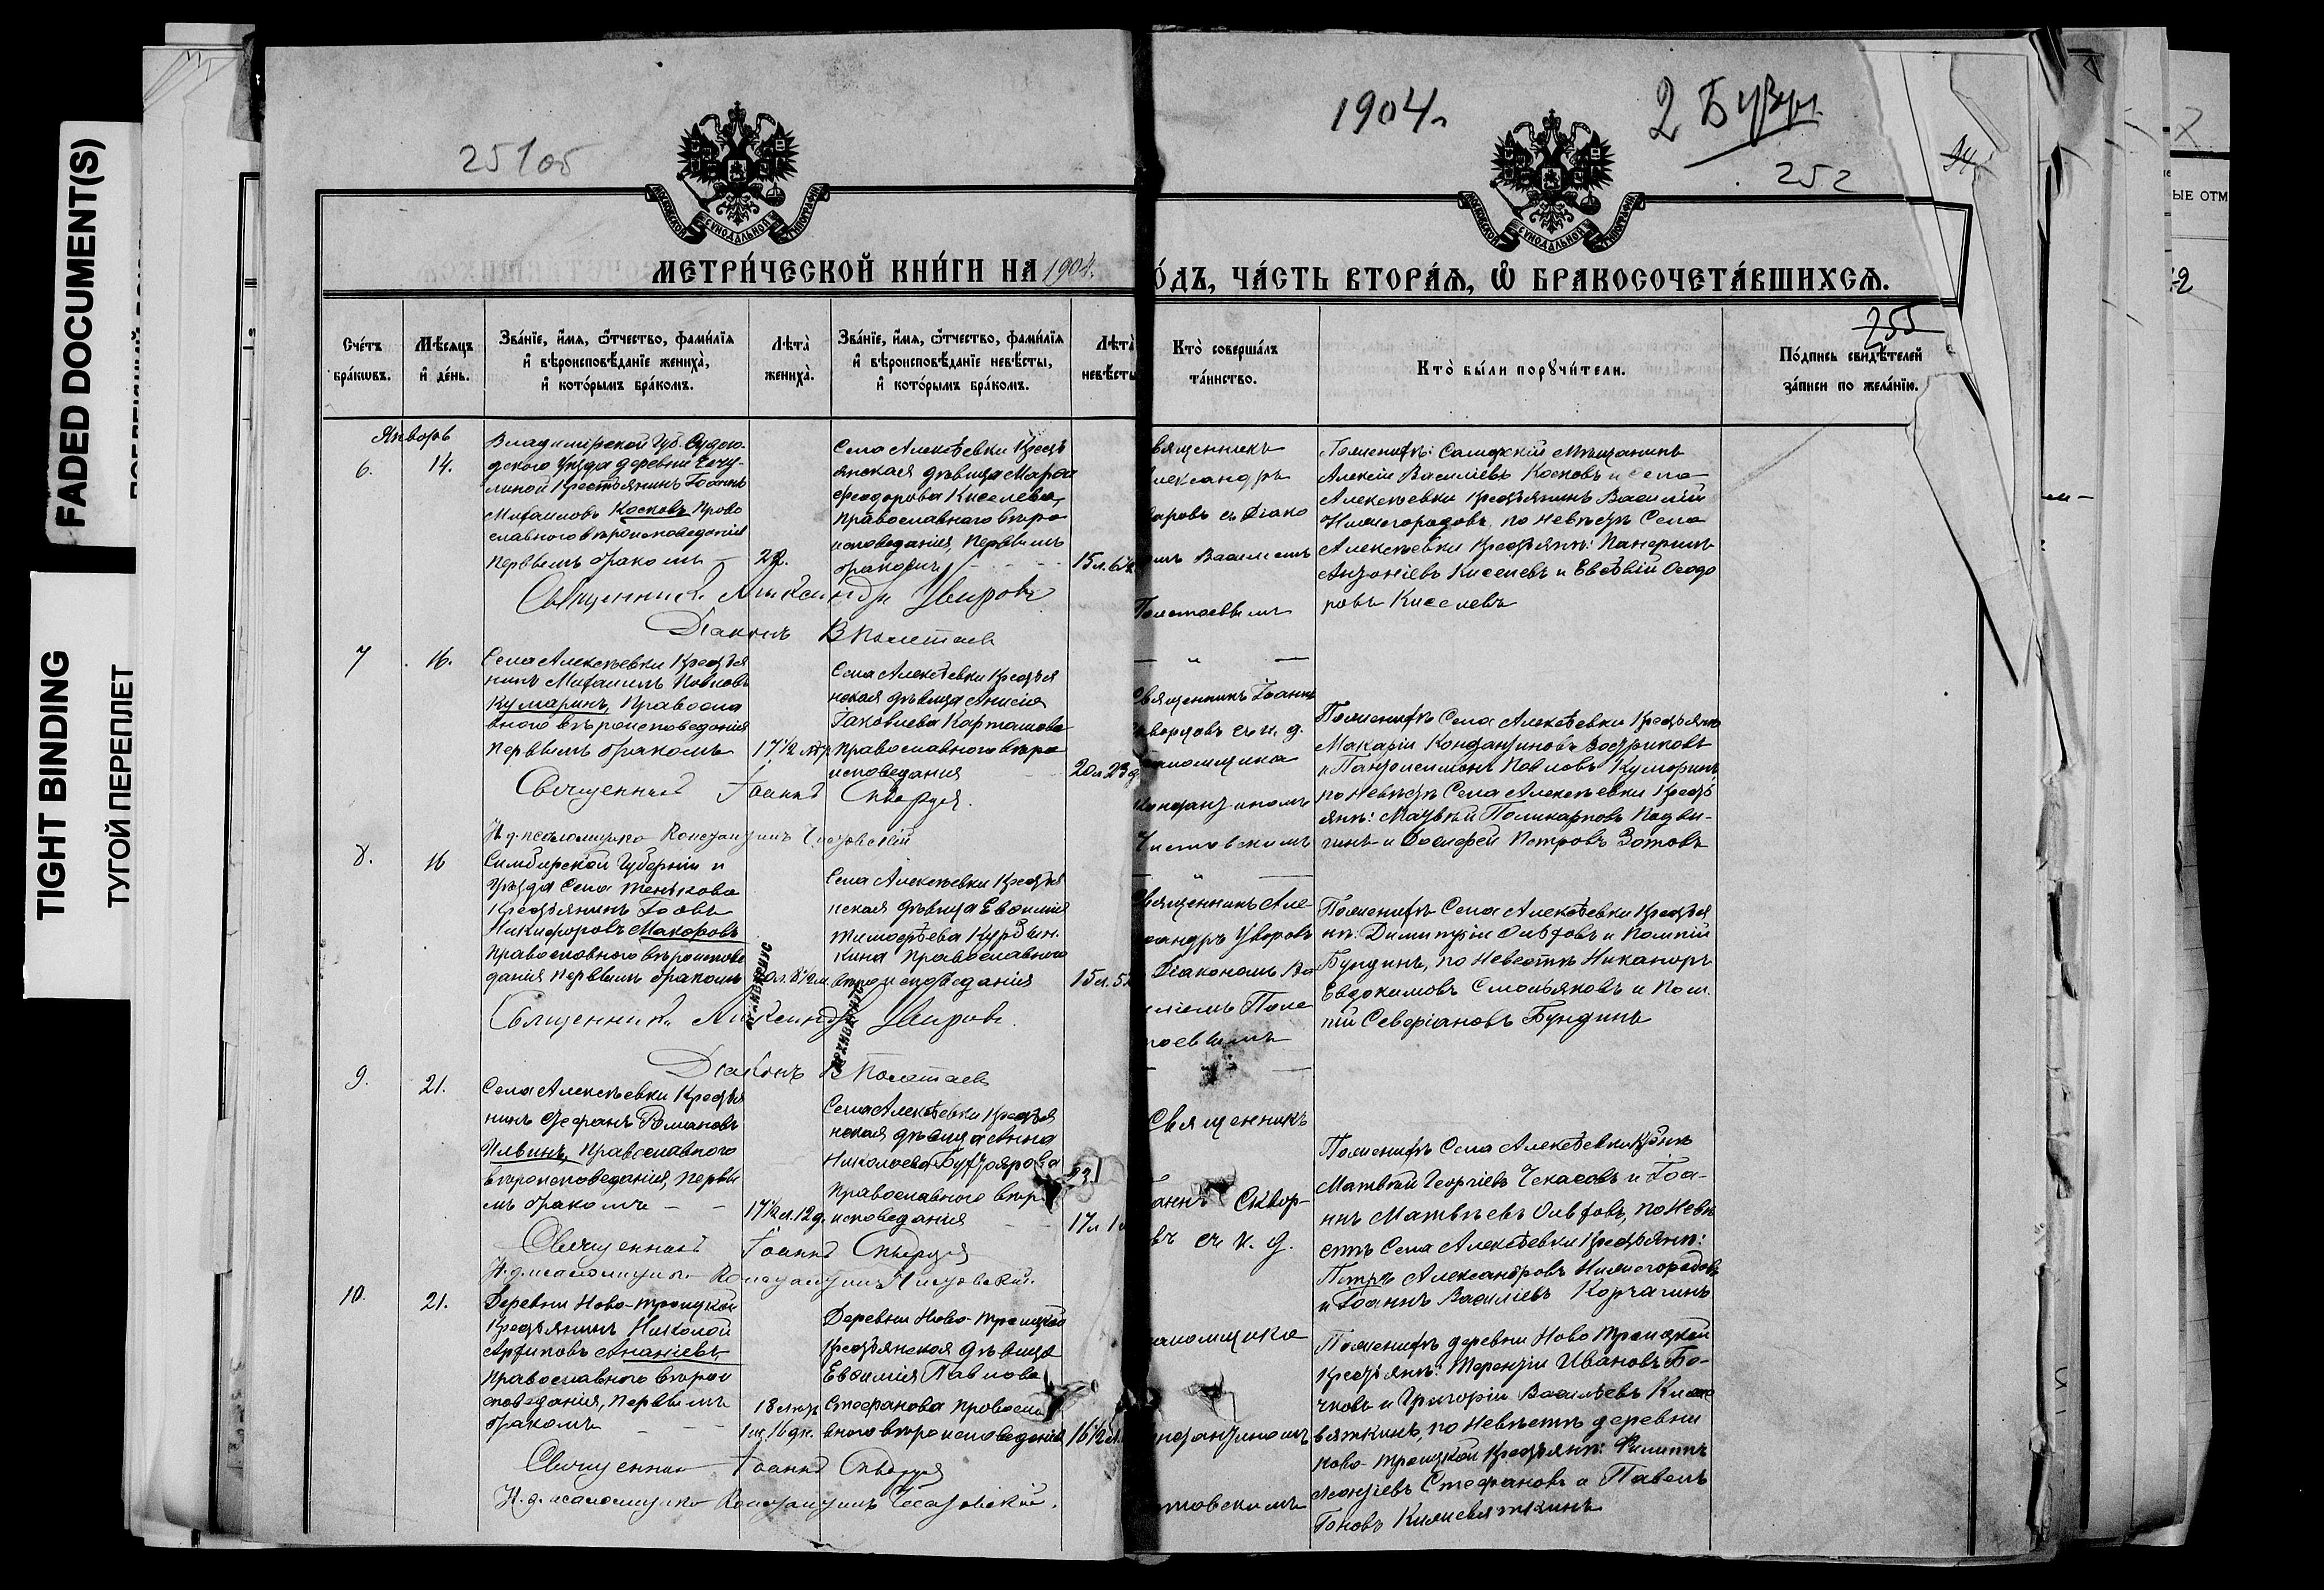 FADED DOCUMENT(S)
TIGHT BINDING
ТУГОЙ ПЕРЕПЛЕТ
25/05
1904.
252
МЕТРИ́ЧЕСКОЙ КНИ́ГИ НА 1904.
О́ДЪ, ЧА́СТЬ ВТОРА́Я, Ѡ БРАКОСОЧЕТА́ВШИХСЯ.
255
Сче́тъ бра́ковъ.
Мѣ́сяцъ и де́нь.
Зва́нїе, и́мя, ѻ́тчество, фами́лїя и вѣроисповѣ́данїе жениха̀, и кото́рымъ бра́комъ.
Лѣта̀ жениха̀.
Зва́нїе, и́мя, ѻ́тчество, фами́лїя и вѣроисповѣ́данїе невѣ́сты, и кото́рымъ бра́комъ.
Лѣта̀ невѣ́сты
Кто̀ соверша́лъ та́инство.
Кто̀ бы́ли порꙋчи́тели.
По́дпись свидѣ́телей за́писи по жела́нїю.
Январь
6.
14.
Владимірской Губ. Судого-
дского Уѣзда деревни
Крестьянинъ Іоаннъ
Михаиловъ Косковъ Право
славнаго вѣроисповеданія
первымъ бракомъ
22.
Села Алексѣевки Кресть
янская дѣвица Марѳа
Ѳеодорова Киселева,
православнаго вѣро
исповеданія, первымъ
бракомъ
вященникъ
лександръ
варовъ съ Діако
омъ Василіемъ
Полетаевымъ
По женихѣ: Самарскій мѣщанинъ
Алексій Василіевъ Косковъ и села
Алексѣевки крестьянинъ Василій
Нижегородовъ, по невѣстѣ Села
Алексѣевки крестьяне:
Антоніевъ Киселевъ и Евсѣвій Ѳеодо
ровъ Киселевъ
Священникъ Александръ Уваровъ
Діаконъ В Полетаевъ
7
16.
Села Алексѣевки Крестья
нинъ Михаилъ Павловъ
Кумаринъ, Правосла
внаго вѣроисповеданія
первымъ бракомъ
17 1/2 лѣтъ
Села Алексѣевки Крестья
нская дѣвица Анисія
Іаковлева Карташова
православнаго вѣро
исповеданія
20 л 23 д
Священникъ Іоаннъ
кворцовъ съ и. д.
саломщика
Константиномъ
Чистовскимъ
По женихѣ Села Алексѣевки Крестьяне
Макарій Константиновъ Востриковъ
и Пантолеимонъ Павловъ Кумаринъ
по невѣстѣ Села Алексѣевки Кресть
яне: Матвѣй Поликарповъ
и Досифей Петровъ Зотовъ
Священникъ Іоаннъ Скворцов.
И. д. псаломщика Константинъ Чистовскій
8.
16
Симбирской Губерніи и
Уѣзда Села Тенькова
Крестьянинъ Іовъ
Никифоровъ Макаровъ
православнаго вѣроиспове
данія первымъ бракомъ
Села Алексѣевки Крестья
нская дѣвица Евфимія
Тимофѣева
православнаго
вѣроисповѣданія
Священникъ Але
сандръ Уваровъ
Діакономъ Ва
силіемъ Поле
таевымъ
По женихѣ Села Алексѣевки Крестья
не: Димитрій и Помпій
Бундинъ, по невѣстѣ Никаноръ
Евдокимовъ Смольяковъ и Пом
пій Северіановъ Бундинъ
Священникъ Александръ Уваровъ.
Діаконъ В Полетаевъ
9.
21.
Села Алексѣевки Крестья
нинъ Стефанъ Романовъ
Ильинъ, Православнаго
вѣроисповеданія, первы
мъ бракомъ
17 1/2 л. 12 д.
Села Алексѣевки Крестья
нская дѣвица Анна
Николаева
Православнаго вѣро
исповеданія
Священникъ
Іоаннъ Сквор-
въ съ и. д.
По женихѣ Села Алексѣевки Крест.
Матвѣй Георгіевъ Чекасовъ и Іоа-
ннъ Матвѣевъ, по невѣ
стѣ Села Алексѣевки Крестьяне:
Петръ Александровъ Нижегородовъ
и Іоаннъ Василіевъ Корчагинъ
Священникъ Іоаннъ Скворцов
И. д. псаломщика Константинъ Чистовскій.
10.
21.
Деревни Ново-Троицкой
Крестьянинъ Николай
Архиповъ Ананіевъ,
православнаго вѣрои
споведанія, первымъ
бракомъ
18 лѣтъ
1 м. 16 дн.
Деревни Ново-Троицкой
Крестьянская дѣвица
Евфимія Павлова
Стефанова правосла
внаго вѣроисповеданія
16 1/2 л.
саломщика
онстантиномъ
стовскимъ
По женихѣ деревни Ново Троицкой
Крестьяне: Терентій Ивановъ Бо-
чковъ и Григорій Василіевъ
по невѣстѣ деревни
Ново-Троицкой Крестьяне: Филиппъ
Леонтіевъ Стефановъ и Павелъ
Священникъ Іоаннъ Скворцов
И. д. псаломщика Константинъ Чистовскій.
ЫЕ ОТМ